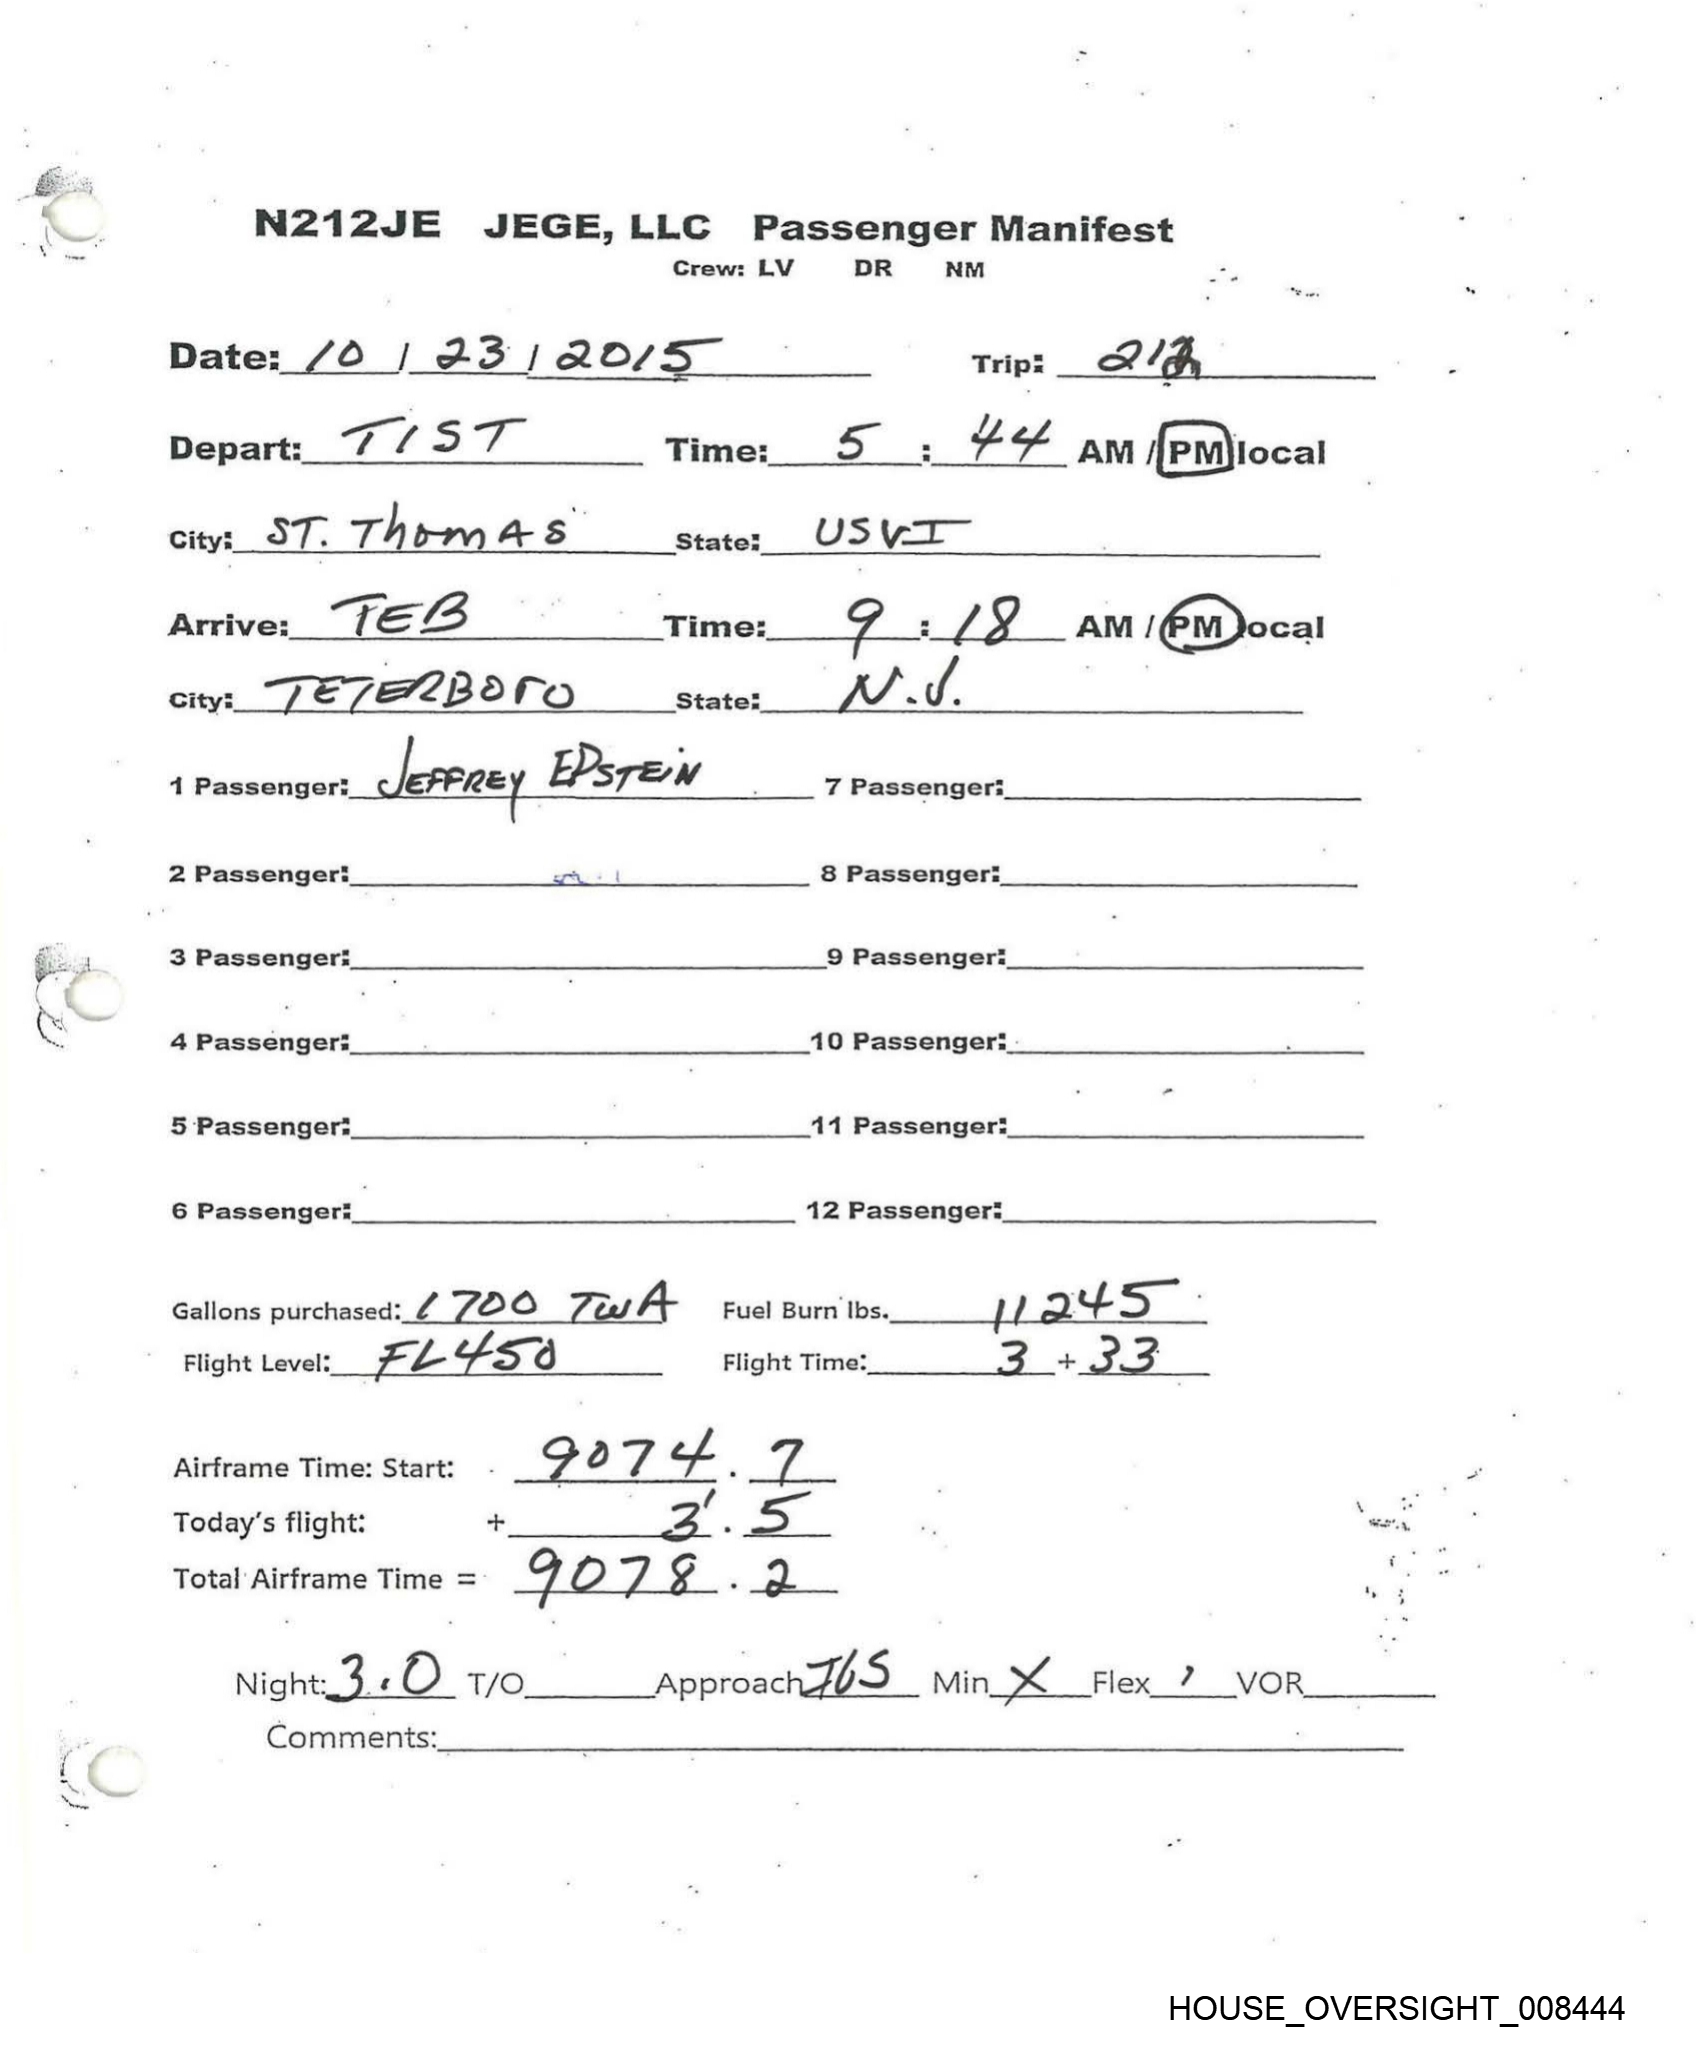 N212JE JEGE, LLC Passenger Manifest
Crew: LV DR NM
Date: 10 / 23 / 2015 Trip:
Depart: TIST Time: 5 : 44 AM / PM local
City: ST. ThomAS State: USVI
Arrive: TEB Time: 9 : 18 AM / PM local
City: TETERBORO State: N.J.
1 Passenger: JEFFREY EPSTEIN 7 Passenger:
2 Passenger: 8 Passenger:
3 Passenger: 9 Passenger:
4 Passenger: 10 Passenger:
5 Passenger: 11 Passenger:
6 Passenger: 12 Passenger:
Gallons purchased: 1700 TWA Fuel Burn lbs. 11245
Flight Level: FL450 Flight Time: 3 + 33
Airframe Time: Start: 9074.7
Today's flight: + 3.5
Total Airframe Time = 9078.2
Night: 3.0 T/O Approach ILS Min X Flex VOR
Comments:
HOUSE_OVERSIGHT_008444